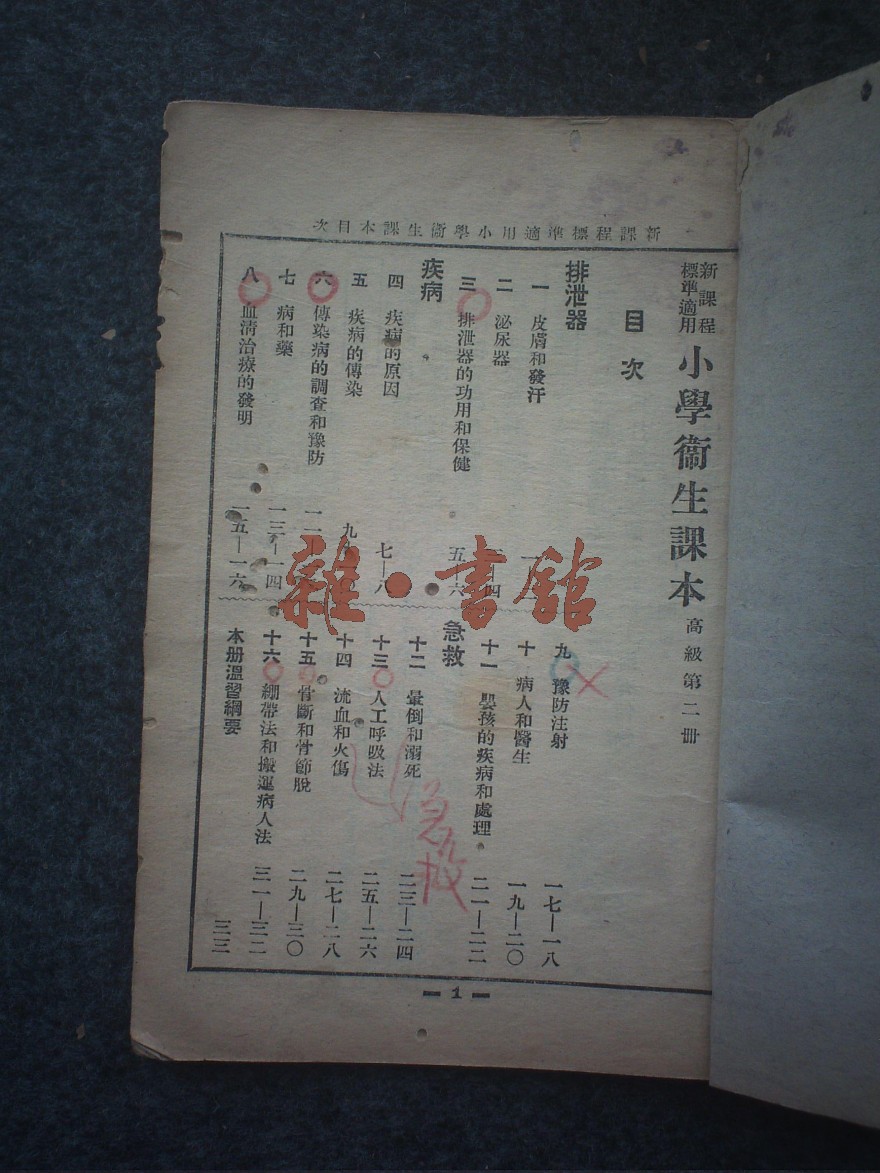 新課程標準適用小學衞生課本目次
新課程
標準適用
小學衞生課本
高級第二册
目次
排泄器
一 皮膚和發汗
二 泌尿器
三 排泄器的功用和保健 五—六
疾病
四 疾病的原因 七—八
五 疾病的傳染 九
六 傳染病的調查和豫防 一一
七 病和藥 一三—一四
八 血清治療的發明 一五—一六
九 豫防注射 一七—一八
十 病人和醫生 一九—二〇
十一 嬰孩的疾病和處理 二一—二二
急救
十二 暈倒和溺死 二三—二四
十三 人工呼吸法 二五—二六
十四 流血和火傷 二七—二八
十五 骨斷和骨節脫 二九—三〇
十六 綳帶法和搬運病人法 三一—三二
本册溫習綱要 三三
急救
雜·書館
— 1 —